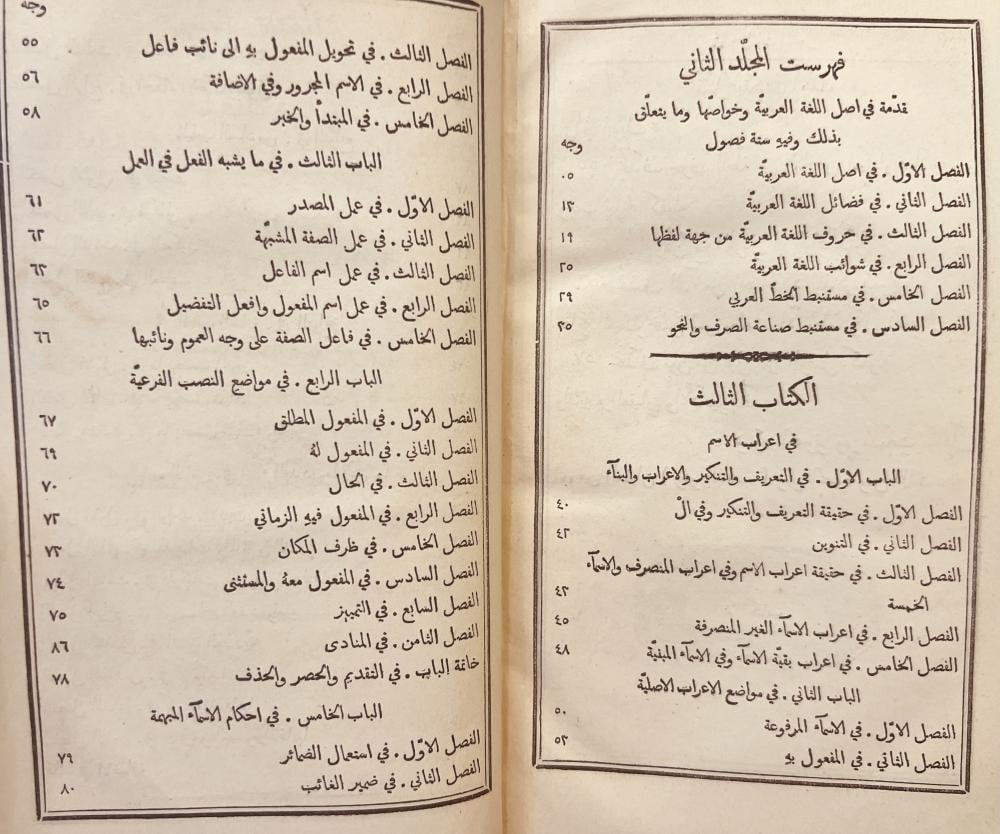 فهرست المجلّد الثاني
قدّمة في اصل اللغة العربيّة وخواصّها وما يتعلّق
بذلك وفيهِ ستة فصول وجه
الفصل الاوّل . في اصل اللغة العربيّة ٠٥
الفصل الثاني . في فضائل اللغة العربيّة ١٢
الفصل الثالث . في حروف اللغة العربيّة من جهة لفظها ١٩
الفصل الرابع . في شوائب اللغة العربيّة ٢٥
الفصل الخامس . في مستنبط الخطّ العربي ٢٩
الفصل السادس . في مستنبط صناعة الصرف والنحو ٣٥
الكتاب الثالث
في اعراب الاسم
الباب الاوّل . في التعريف والتنكير والاعراب والبنآء
الفصل الاوّل . في حقيقة التعريف والتنكير وفي الْ ٤٠
الفصل الثاني . في التنوين ٤٢
الفصل الثالث . في حقيقة اعراب الاسم وفي اعراب المنصرف والاسمآء
الخمسة ٤٣
الفصل الرابع . في اعراب الاسمآء الغير المنصرفة ٤٥
الفصل الخامس . في اعراب بقيّة الاسمآء وفي الاسمآء المبنيّة ٤٨
الباب الثاني . في مواضع الاعراب الاصليّة
الفصل الاوّل . في الاسمآء المرفوعة ٥٠
الفصل الثاني . في المفعول بهِ ٥٢
وجه
الفصل الثالث . في تحويل المفعول بهِ الى نائب فاعل ٥٥
الفصل الرابع . في الاسم المجرور وفي الاضافة ٥٦
الفصل الخامس . في المبتدأ والخبر ٥٨
الباب الثالث . في ما يشبه الفعل في العمل
الفصل الاوّل . في عمل المصدر ٦١
الفصل الثاني . في عمل الصفة المشبّهة ٦٢
الفصل الثالث . في عمل اسم الفاعل ٦٣
الفصل الرابع . في عمل اسم المفعول وافعل التفضيل ٦٥
الفصل الخامس . في فاعل الصفة على وجه العموم ونائبها ٦٦
الباب الرابع . في مواضع النصب الفرعيّة
الفصل الاوّل . في المفعول المطلق ٦٧
الفصل الثاني . في المفعول لهُ ٦٩
الفصل الثالث . في الحال ٧٠
الفصل الرابع . في المفعول فيهِ الزماني ٧٢
الفصل الخامس . في ظرف المكان ٧٣
الفصل السادس . في المفعول معهُ والمستثنى ٧٤
الفصل السابع . في التمييز ٧٥
الفصل الثامن . في المنادى ٨٦
خاتمة الباب . في التقديم والحصر والحذف ٧٨
الباب الخامس . في احكام الاسمآء المبهمة
الفصل الاوّل . في استعمال الضمائر ٧٩
الفصل الثاني . في ضمير الغائب ٨٠